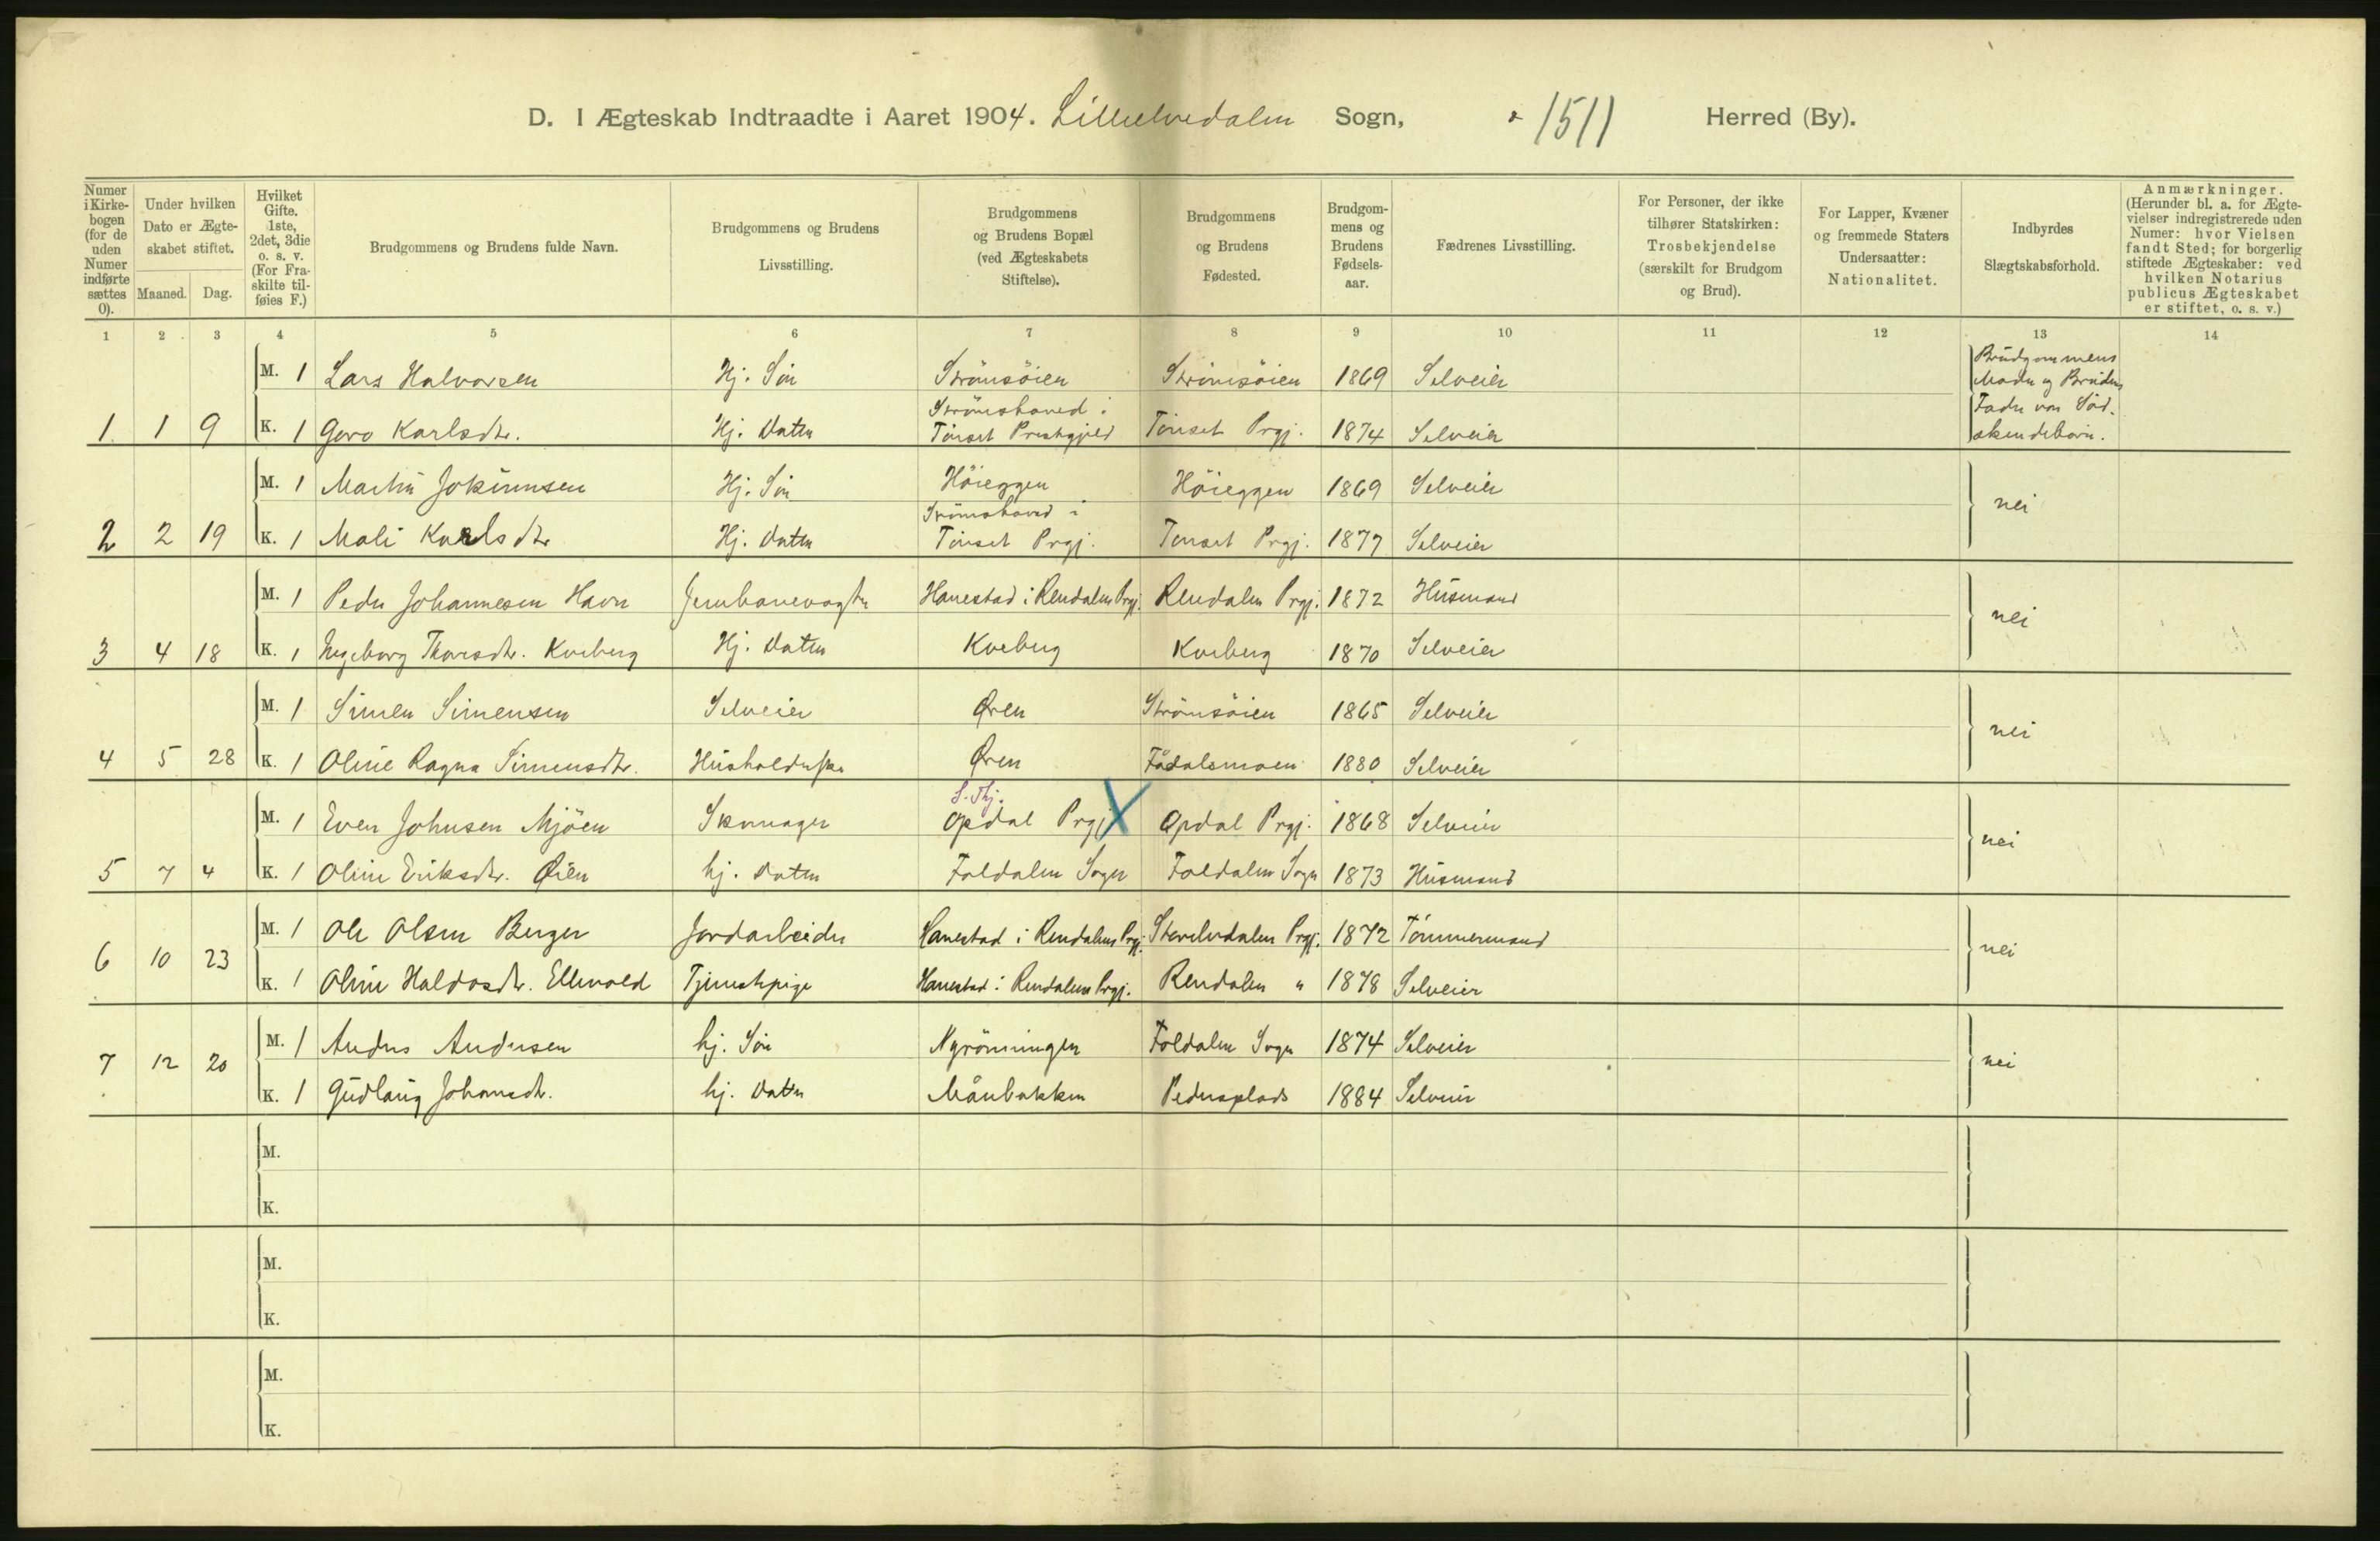 D. I Ægteskab Indtraadte i Aaret 1904. Lilleelvedalen Sogn, 1511 Herred (By).
Numer i Kirke-bogen (for de uden Numer indførte sættes 0).
Under hvilken Dato er Ægte-skabet stiftet.
Maaned. Dag.
Hvilket Gifte. 1ste, 2det, 3die o. s. v. (For Fra-skilte til-føies F.)
Brudgommens og Brudens fulde Navn.
Brudgommens og Brudens Livsstilling.
Brudgommens og Brudens Bopæl (ved Ægteskabets Stiftelse).
Brudgommens og Brudens Fødested.
Brudgom-mens og Brudens Fødsels-aar.
Fædrenes Livsstilling.
For Personer, der ikke tilhører Statskirken: Trosbekjendelse (særskilt for Brudgom og Brud).
For Lapper, Kvæner og fremmede Staters Undersaatter: Nationalitet.
Indbyrdes Slægtskabsforhold.
Anmærkninger. (Herunder bl. a. for Ægte-vielser indregistrerede uden Numer: hvor Vielsen fandt Sted; for borgerlig stiftede Ægteskaber: ved hvilken Notarius publicus Ægteskabet er stiftet, o. s. v.)
1 2 3 4 5 6 7 8 9 10 11 12 13 14
M. 1 Lars Halvorsen Hj. Søn Strömsöien Strömsöien 1869 Selveier
Brudgommens Moder og Brudens Fader var Sødskendebørn.
1 1 9 K. 1 Goro Karlsdtr. Hj. Datter Strömshoved i Tönset Prestgjeld Tönset Prgj. 1874 Selveier
M. 1 Martin Jokumsen Hj. Søn Höieggen Höieggen 1869 Selveier
nei
2 2 19 K. 1 Mali Karlsdtr Hj. Datter Strömshoved i Tönset Prgj. Tönset Prgj. 1877 Selveier
M. 1 Peder Johannesen Havn Jernbanevogter Hanestad i Rendalen Prgj. Rendalen Prgj. 1872 Husmand
nei
3 4 18 K. 1 Ingeborg Thoresdtr. Kveberg Hj. Datter Kveberg Kveberg 1870 Selveier
M. 1 Simen Simensen Selveier Øren Strömsöien 1865 Selveier
nei
4 5 28 K. 1 Oline Ragna Simensdtr. Husholderske Øren Fådalsmoen 1880 Selveier
M. 1 Even Johnsen Mjöen Skomager S. Thj. Opdal Prgj. X Opdal Prgj. 1868 Selveier
nei
5 7 4 K. 1 Oline Eriksdtr. Øien hj. Datter Foldalen Sogn Foldalen Sogn 1873 Husmand
M. 1 Ole Olsen Berger Jordarbeider Hanestad i Rendalens Prgj. Storelvdalen Prgj. 1872 Tömmermand
6 10 23 nei
K. 1 Oline Haldosdtr. Ellevold Tjenestepige Hanestad i Rendalens Prgj. Rendalen " 1878 Selveier
M. 1 Anders Andersen hj. Søn Nyrönningen Foldalen Sogn 1874 Selveier
7 12 20 nei
K. 1 Gudlaug Johansdtr. hj. Datter Månbakken Pedersplads 1884 Selveier
M.
K.
M.
K.
M.
K.